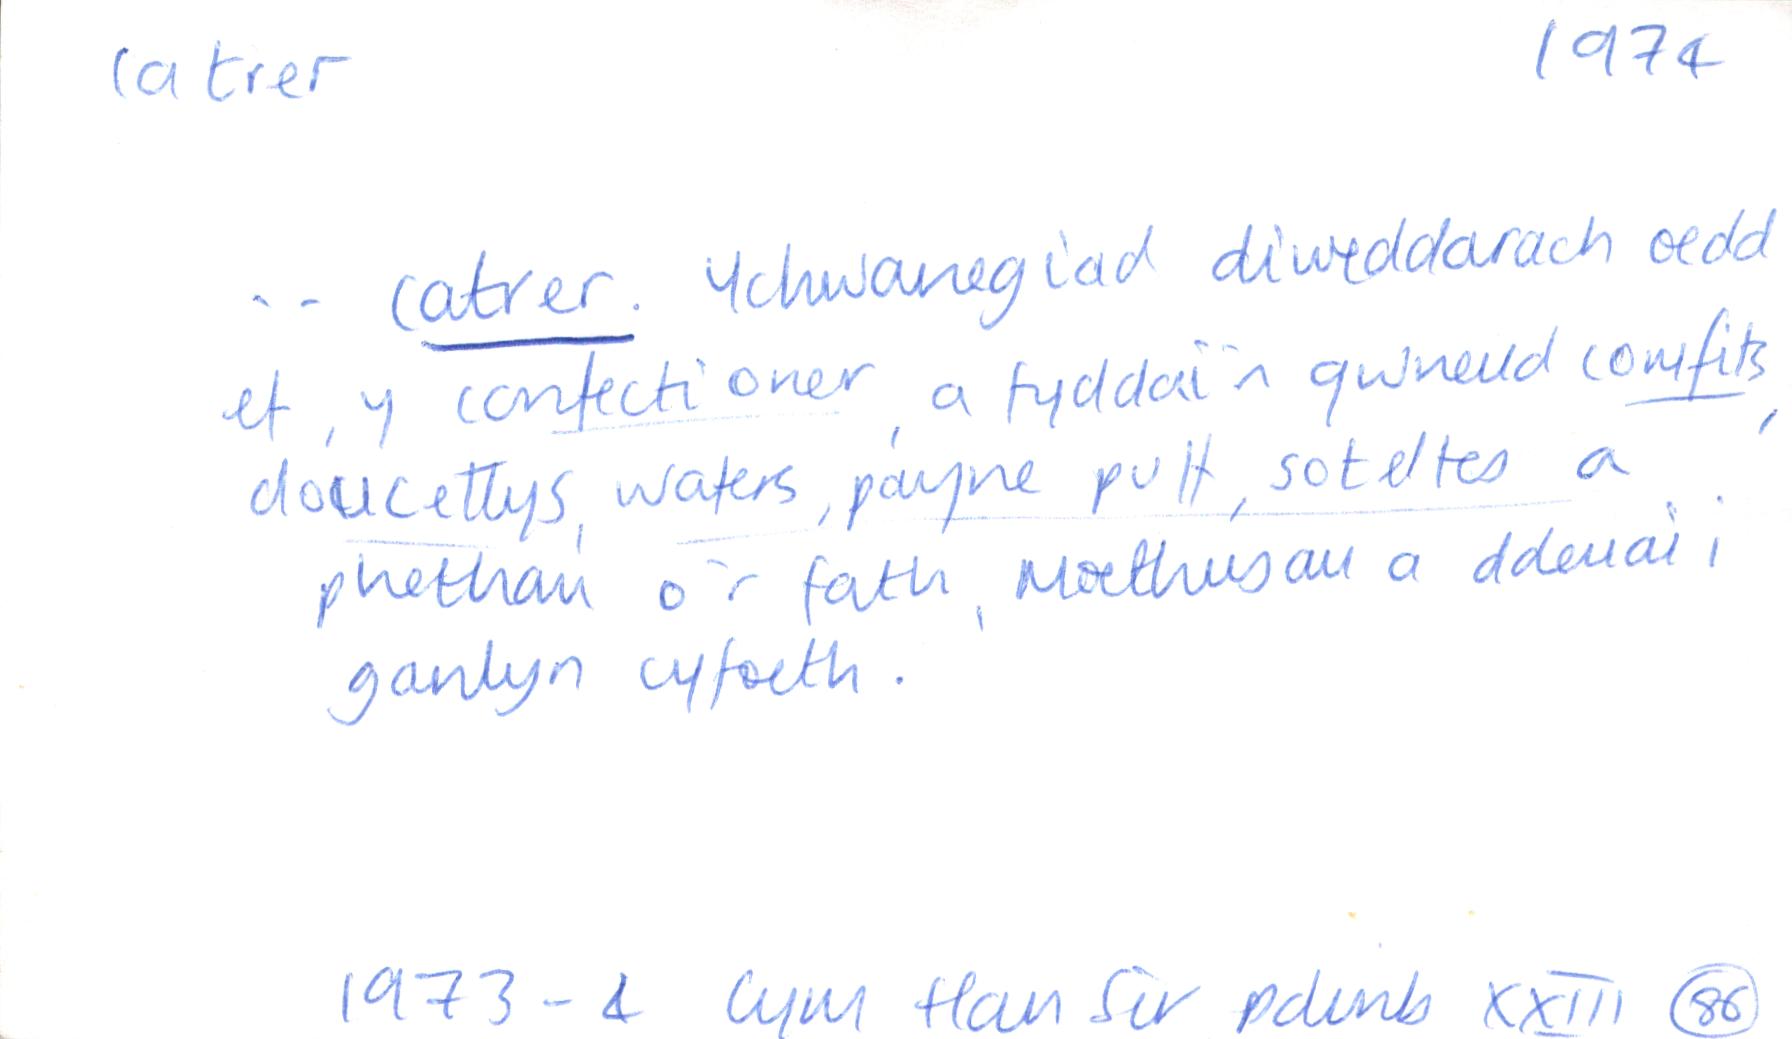 catrer 1974
.. catrer. Ychwanegiad diweddarach oedd
ef, y confectioner, a fyddai'n gwneud comfits,
doucettys, wafers, payne puff, soteltes a
phethau o'r fath, moethusau a ddeuai i
ganlyn cyfoeth.
1973-4 Cym Han Sir Ddinb XXIII 86